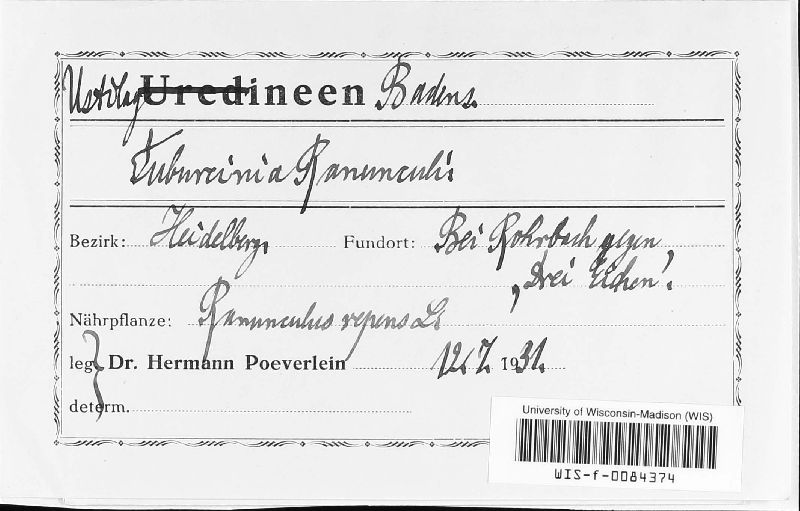 Ustilagineen Badens.
Tuburcinia Ranunculi.
Bezirk: Heidelberg. Fundort: Bei Rohrbach gegen
„Drei Eichen“.
Nährpflanze: Ranunculus repens L.
leg. Dr. Hermann Poeverlein 12.7. 1931.
determ.
University of Wisconsin-Madison (WIS)
WIS-f-0084374